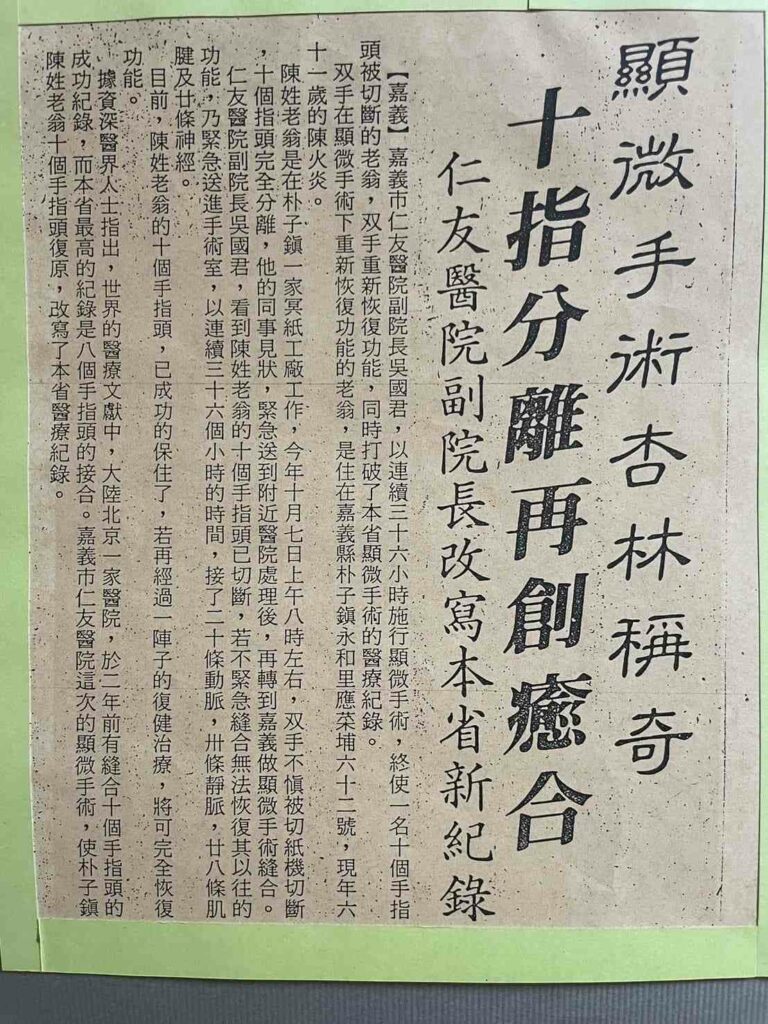 顯微手術杏林稱奇
十指分離再創癒合
仁友醫院副院長改寫本省新紀錄
【嘉義】嘉義市仁友醫院副院長吳國君，以連續三十六小時施行顯微手術，終使一名十個手指
頭被切斷的老翁，双手重新恢復功能，同時打破了本省顯微手術的醫療紀錄。
双手在顯微手術下重新恢復功能的老翁，是住在嘉義縣朴子鎮永和里應菜埔六十二號，現年六
十一歲的陳火炎。
陳姓老翁是在朴子鎮一家冥紙工廠工作，今年十月七日上午八時左右，双手不慎被切紙機切斷
，十個指頭完全分離，他的同事見狀，緊急送到附近醫院處理後，再轉到嘉義做顯微手術縫合。
仁友醫院副院長吳國君，看到陳姓老翁的十個手指頭已切斷，若不緊急縫合無法恢復其以往的
功能，乃緊急送進手術室，以連續三十六個小時的時間，接了二十條動脈，卅條靜脈，廿八條肌
腱及廿條神經。
目前，陳姓老翁的十個手指頭，已成功的保住了，若再經過一陣子的復健治療，將可完全恢復
功能。
據資深醫界人士指出，世界的醫療文獻中，大陸北京一家醫院，於二年前有縫合十個手指頭的
成功紀錄，而本省最高的紀錄是八個手指頭的接合。嘉義市仁友醫院這次的顯微手術，使朴子鎮
陳姓老翁十個手指頭復原，改寫了本省醫療紀錄。